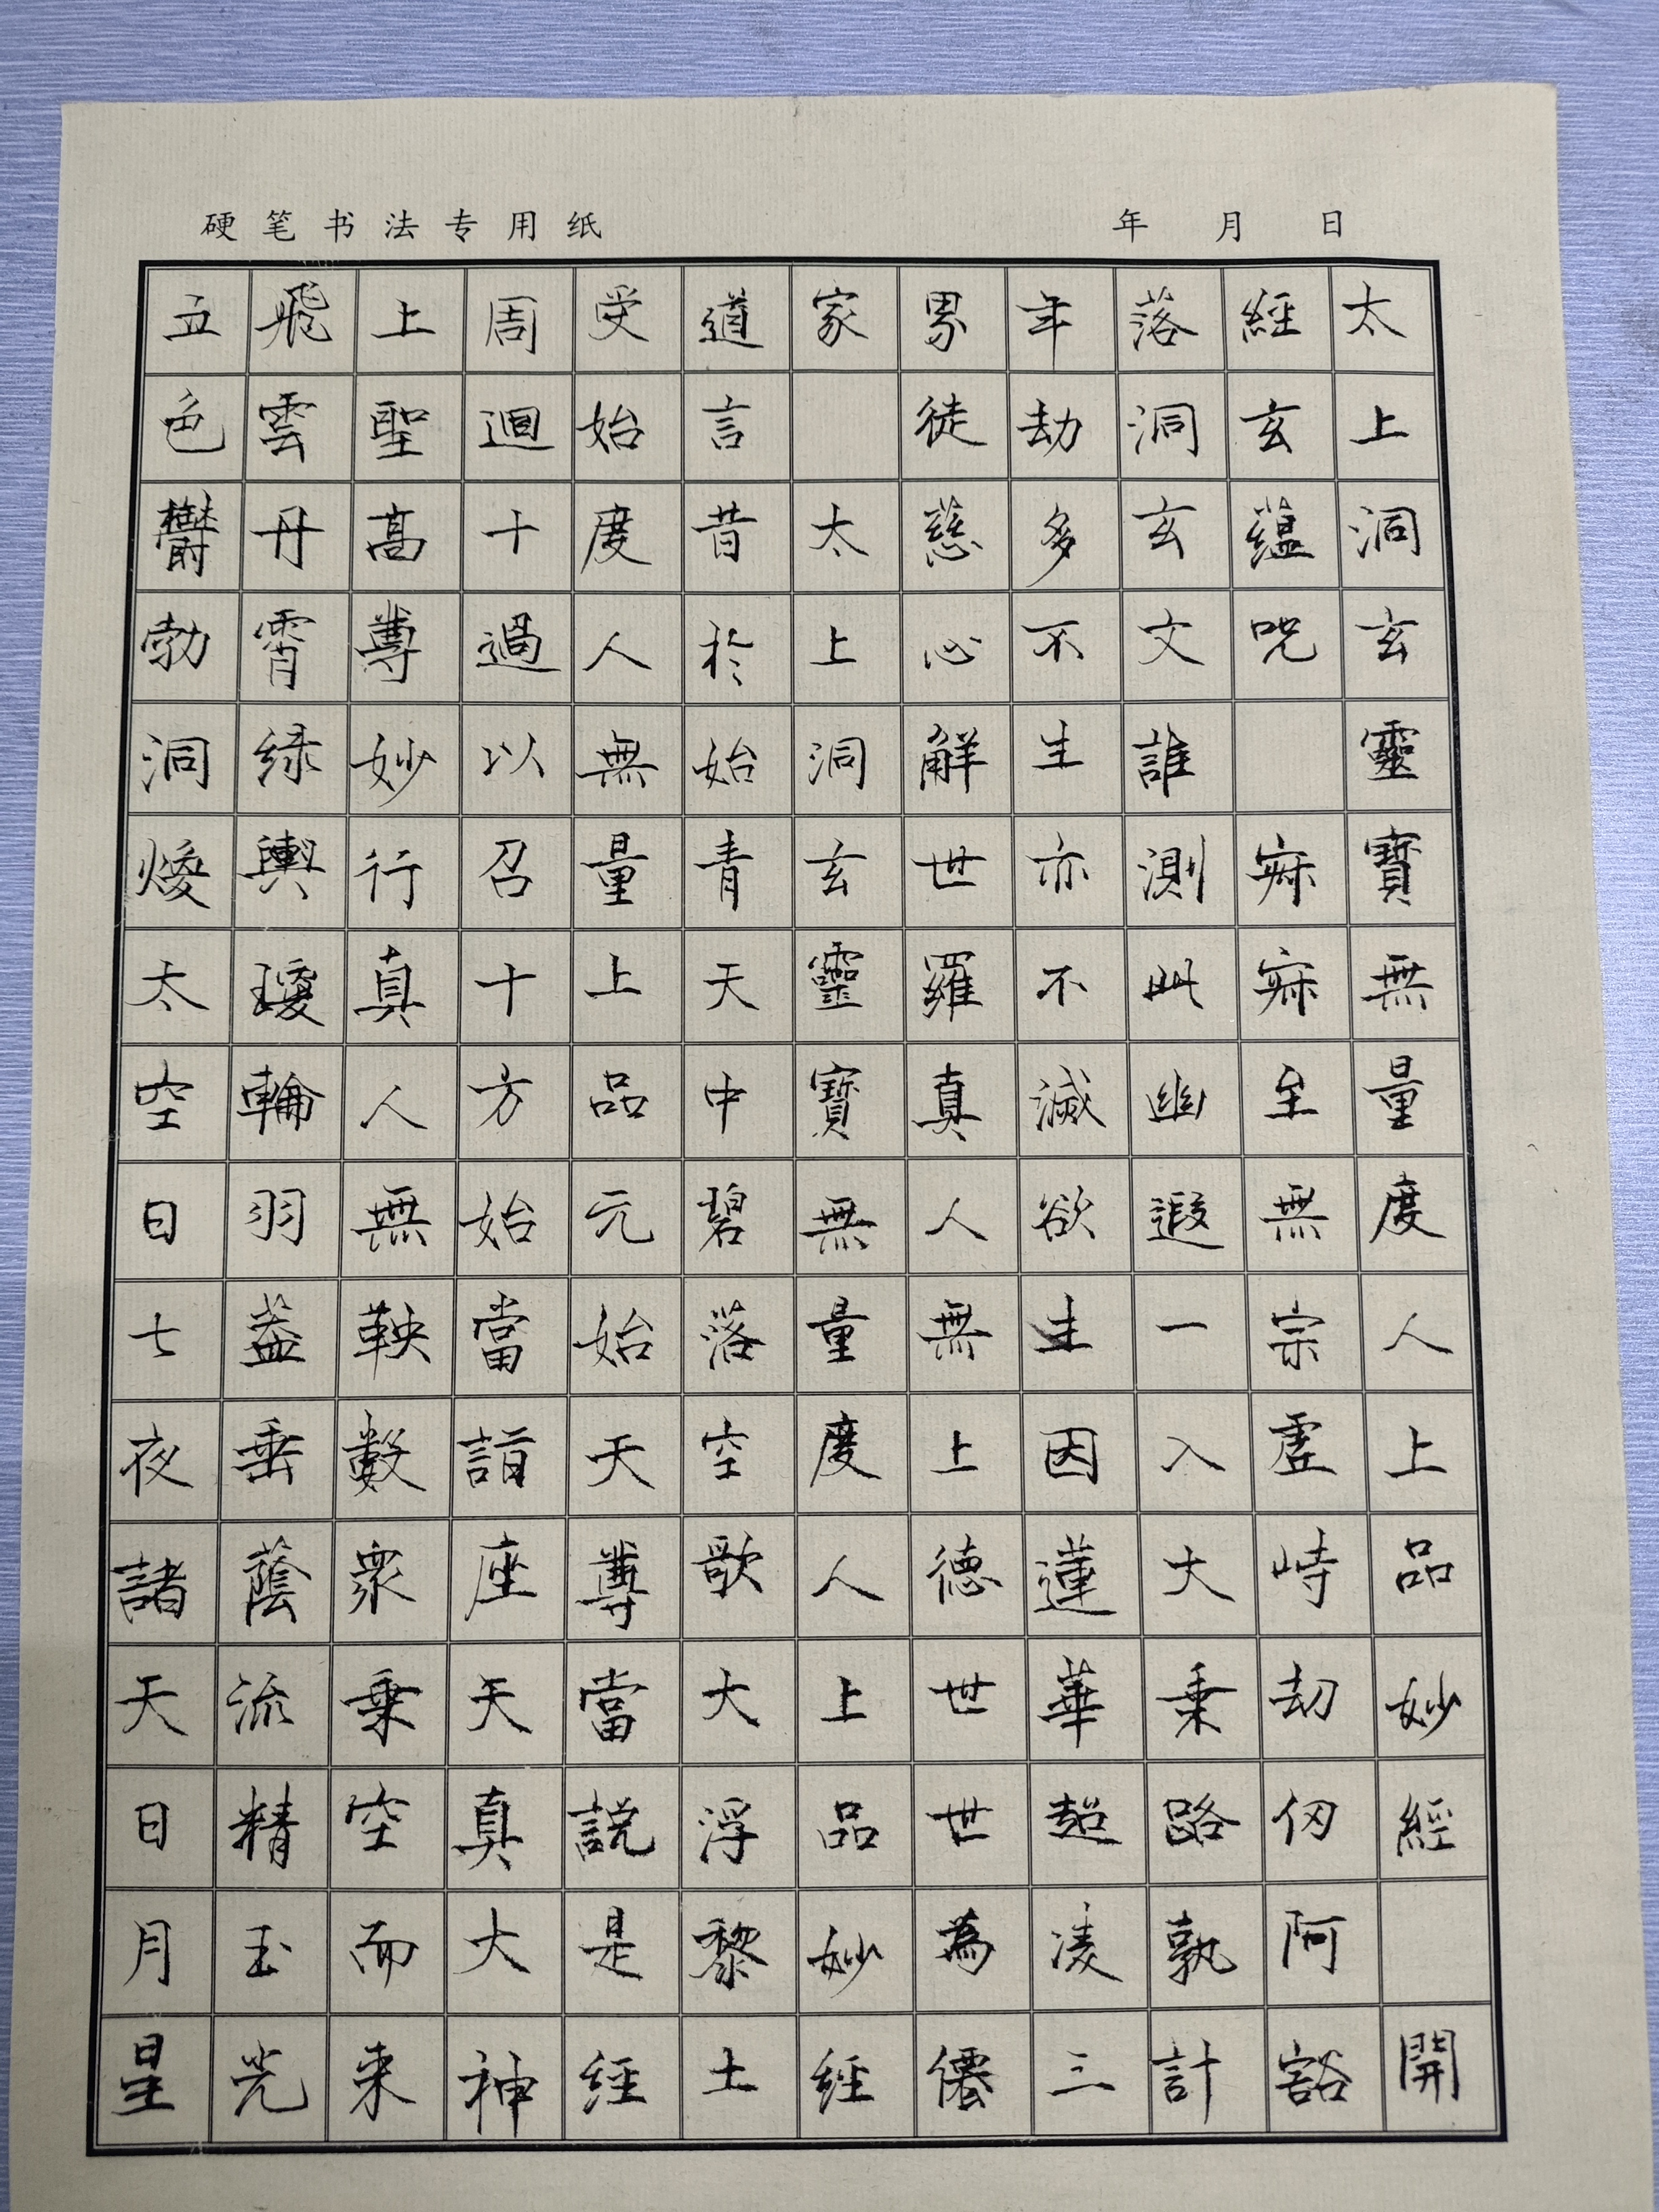 硬笔书法专用纸 年 月 日
太上洞玄靈寶無量度人上品妙經 開
經玄蘊呪 寂寂至無宗虛峙劫仞阿豁
落洞玄文誰測此幽遐一入大乘路孰計
年劫多不生亦不滅欲生因蓮華超凌三
界徒慈心解世羅真人無上德世世為僊
家 太上洞玄靈寶無量度人上品妙經
道言昔於始青天中碧落空歌大浮黎土
受始度人無量上品元始天尊當説是經
周迴十過以召十方始當詣座天真大神
上聖高尊妙行真人無鞅數眾乘空而来
飛雲丹霄緑輿瓊輪羽蓋垂蔭流精玉光
五色鬱勃洞煥太空日七夜諸天日月星